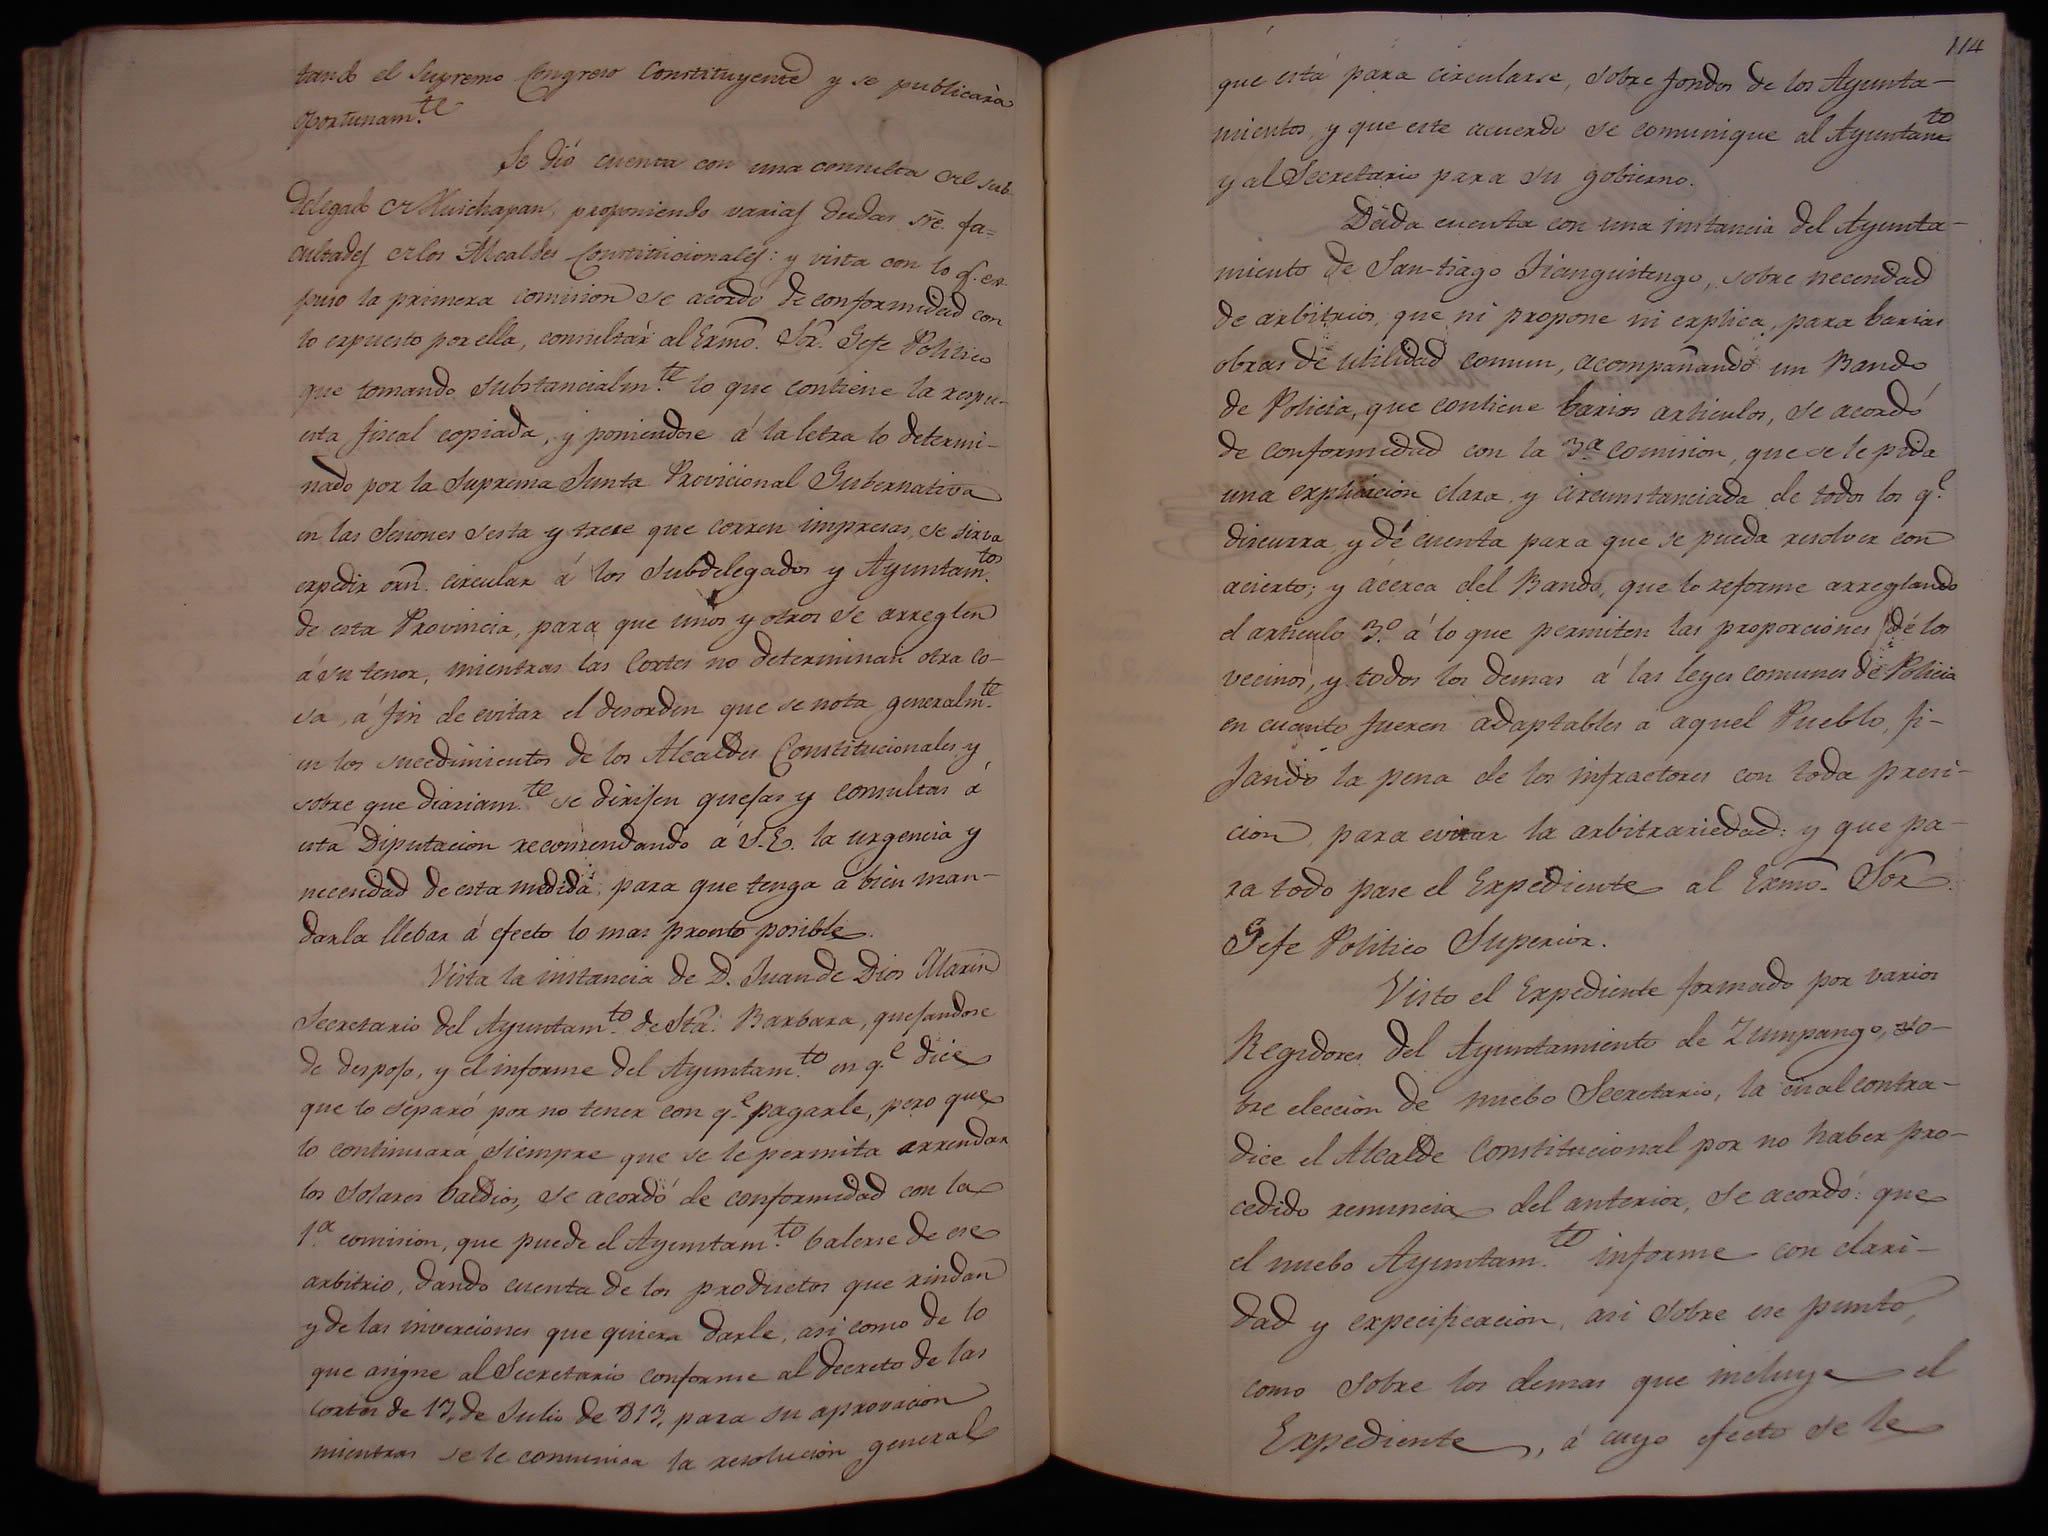 tando el Supremo Congreso Constituyente y se publicará
oportunam.te
Se dió cuenta con una consulta del sub-
delegado de Huichapan, proponiendo varias dudas sre. fa=
cultades de los Alcaldes Constitucionales: y vista con lo q.e ex-
puso la primera comision se acordó de conformidad con
lo expuesto por ella, consultár al Exmo. Sór. Gefe Politico
que tomando substancialm.te lo que contiene la respu-
esta fiscal copiada, y poniendose á la letra lo determi-
nado por la Suprema Junta Provicional Gubernativa
en las Seciones sesta y trece que corren impresas, se sirva
expedir orn. circular á los Subdelegados y Ayuntam.tos
de esta Provincia, para que unos y otros se arreglen
á su tenor, mientras las Cortes no determinan otra co-
sa, á fin de evitar el desorden que se nota generalm.te
en los sucedimientos de los Alcaldes Constitucionales y
sobre que diariam.te se dirijen quejas y consultas á
esta Diputacion recomendando á S.E. la urgencia y
necesidad de esta medida, para que tenga á bien man-
darla llebar á efecto lo mas pronto posible.
Vista la instancia de D. Juan de Dios Marin
Secretario del Ayuntam.to de Sta. Barbara, quejandose
de despojo, y el informe del Ayuntam.to en q.e dice
que lo separó por no tener con q.e pagarle, pero que
lo continuará siempre que se le permita arrendar
los solares baldios, se acordó de conformidad con la
1.a comision, que puede el Ayuntam.to balerse de ese
arbitrio, dando cuenta de los productos que rindan
y de las inverciones que quiera darle, asi como de lo
que asigne al Secretario conforme al decreto de las
Cortes de 17, de Julio de 813, para su aprovacion
mientras se le comunica la resolución general
114
que está para circularse, sobre fondos de los Ayunta-
mientos, y que este acuerdo se comunique al Ayuntam.to
y al Secretario para su gobierno.
Dada cuenta con una instancia del Ayunta-
miento de San-tiago Tianguistengo, sobre necesidad
de arbitrios, que ni propone ni explica, para barias
obras de utilidad comun, acompañando un Bando
de Policia, que contiene barios articulos, se acordó
de conformidad con la 3.a comision, que se le pida
una explicacion clara y circunstanciada de todos los q.e
discurra, y dé cuenta para que se pueda resolver con
acierto; y ácerca del Bando, que lo reforme arreglando
el articulo 3.o á lo que permiten las proporciones de los
vecinos, y todos los demas á las leyes comunes de Policia
en cuanto fueren adaptables a aquel Pueblo, fi-
jando la pena de los infractores con toda presi-
cion, para evitar la arbitrariedad: y que pa-
ra todo pase el Expediente al Exmo. Sor.
Gefe Politico Superior.
Visto el Expediente formado por varios
Regidores del Ayuntamiento de Zumpango, so-
bre elección de nuebo Secretario, la cual contra-
dice el Alcalde Constitucional por no haber pro-
cedido renuncia del anterior, se acordó: que
el nuebo Ayuntam.to informe con clari-
dad y expecificacion, asi sobre ese punto,
como sobre los demas que incluye el
Expediente, á cuyo efecto se le